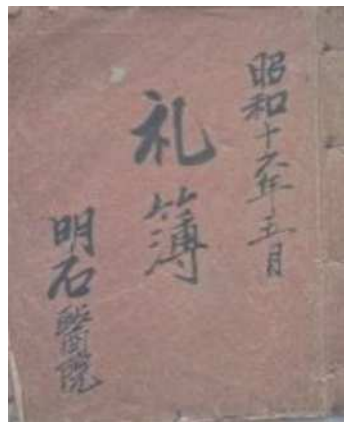 昭和十六年五月
礼簿
明石醫院